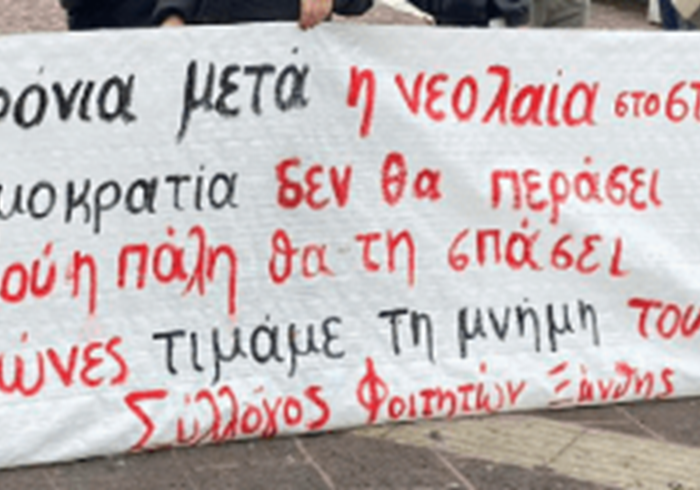 ρόνια μετά η νεολαία στο στ
μοκρατία δεν θα περάσει
ού η πάλη θα τη σπάσει
ώνες τιμάμε τη μνήμη του
Σύλλόγος Φοιτητών Ξάνθης